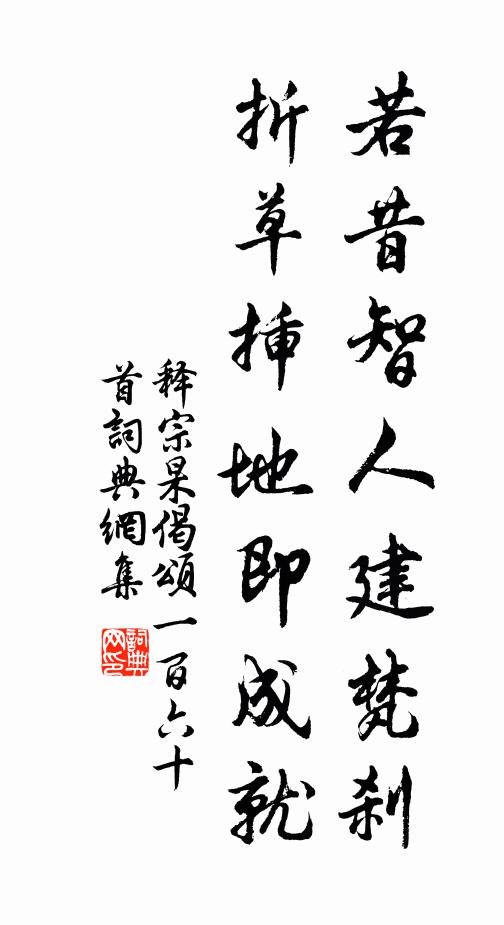 若昔智人建梵刹
折草插地即成就
释宗杲偈頌一百六十
首詞典網集
詞典网印